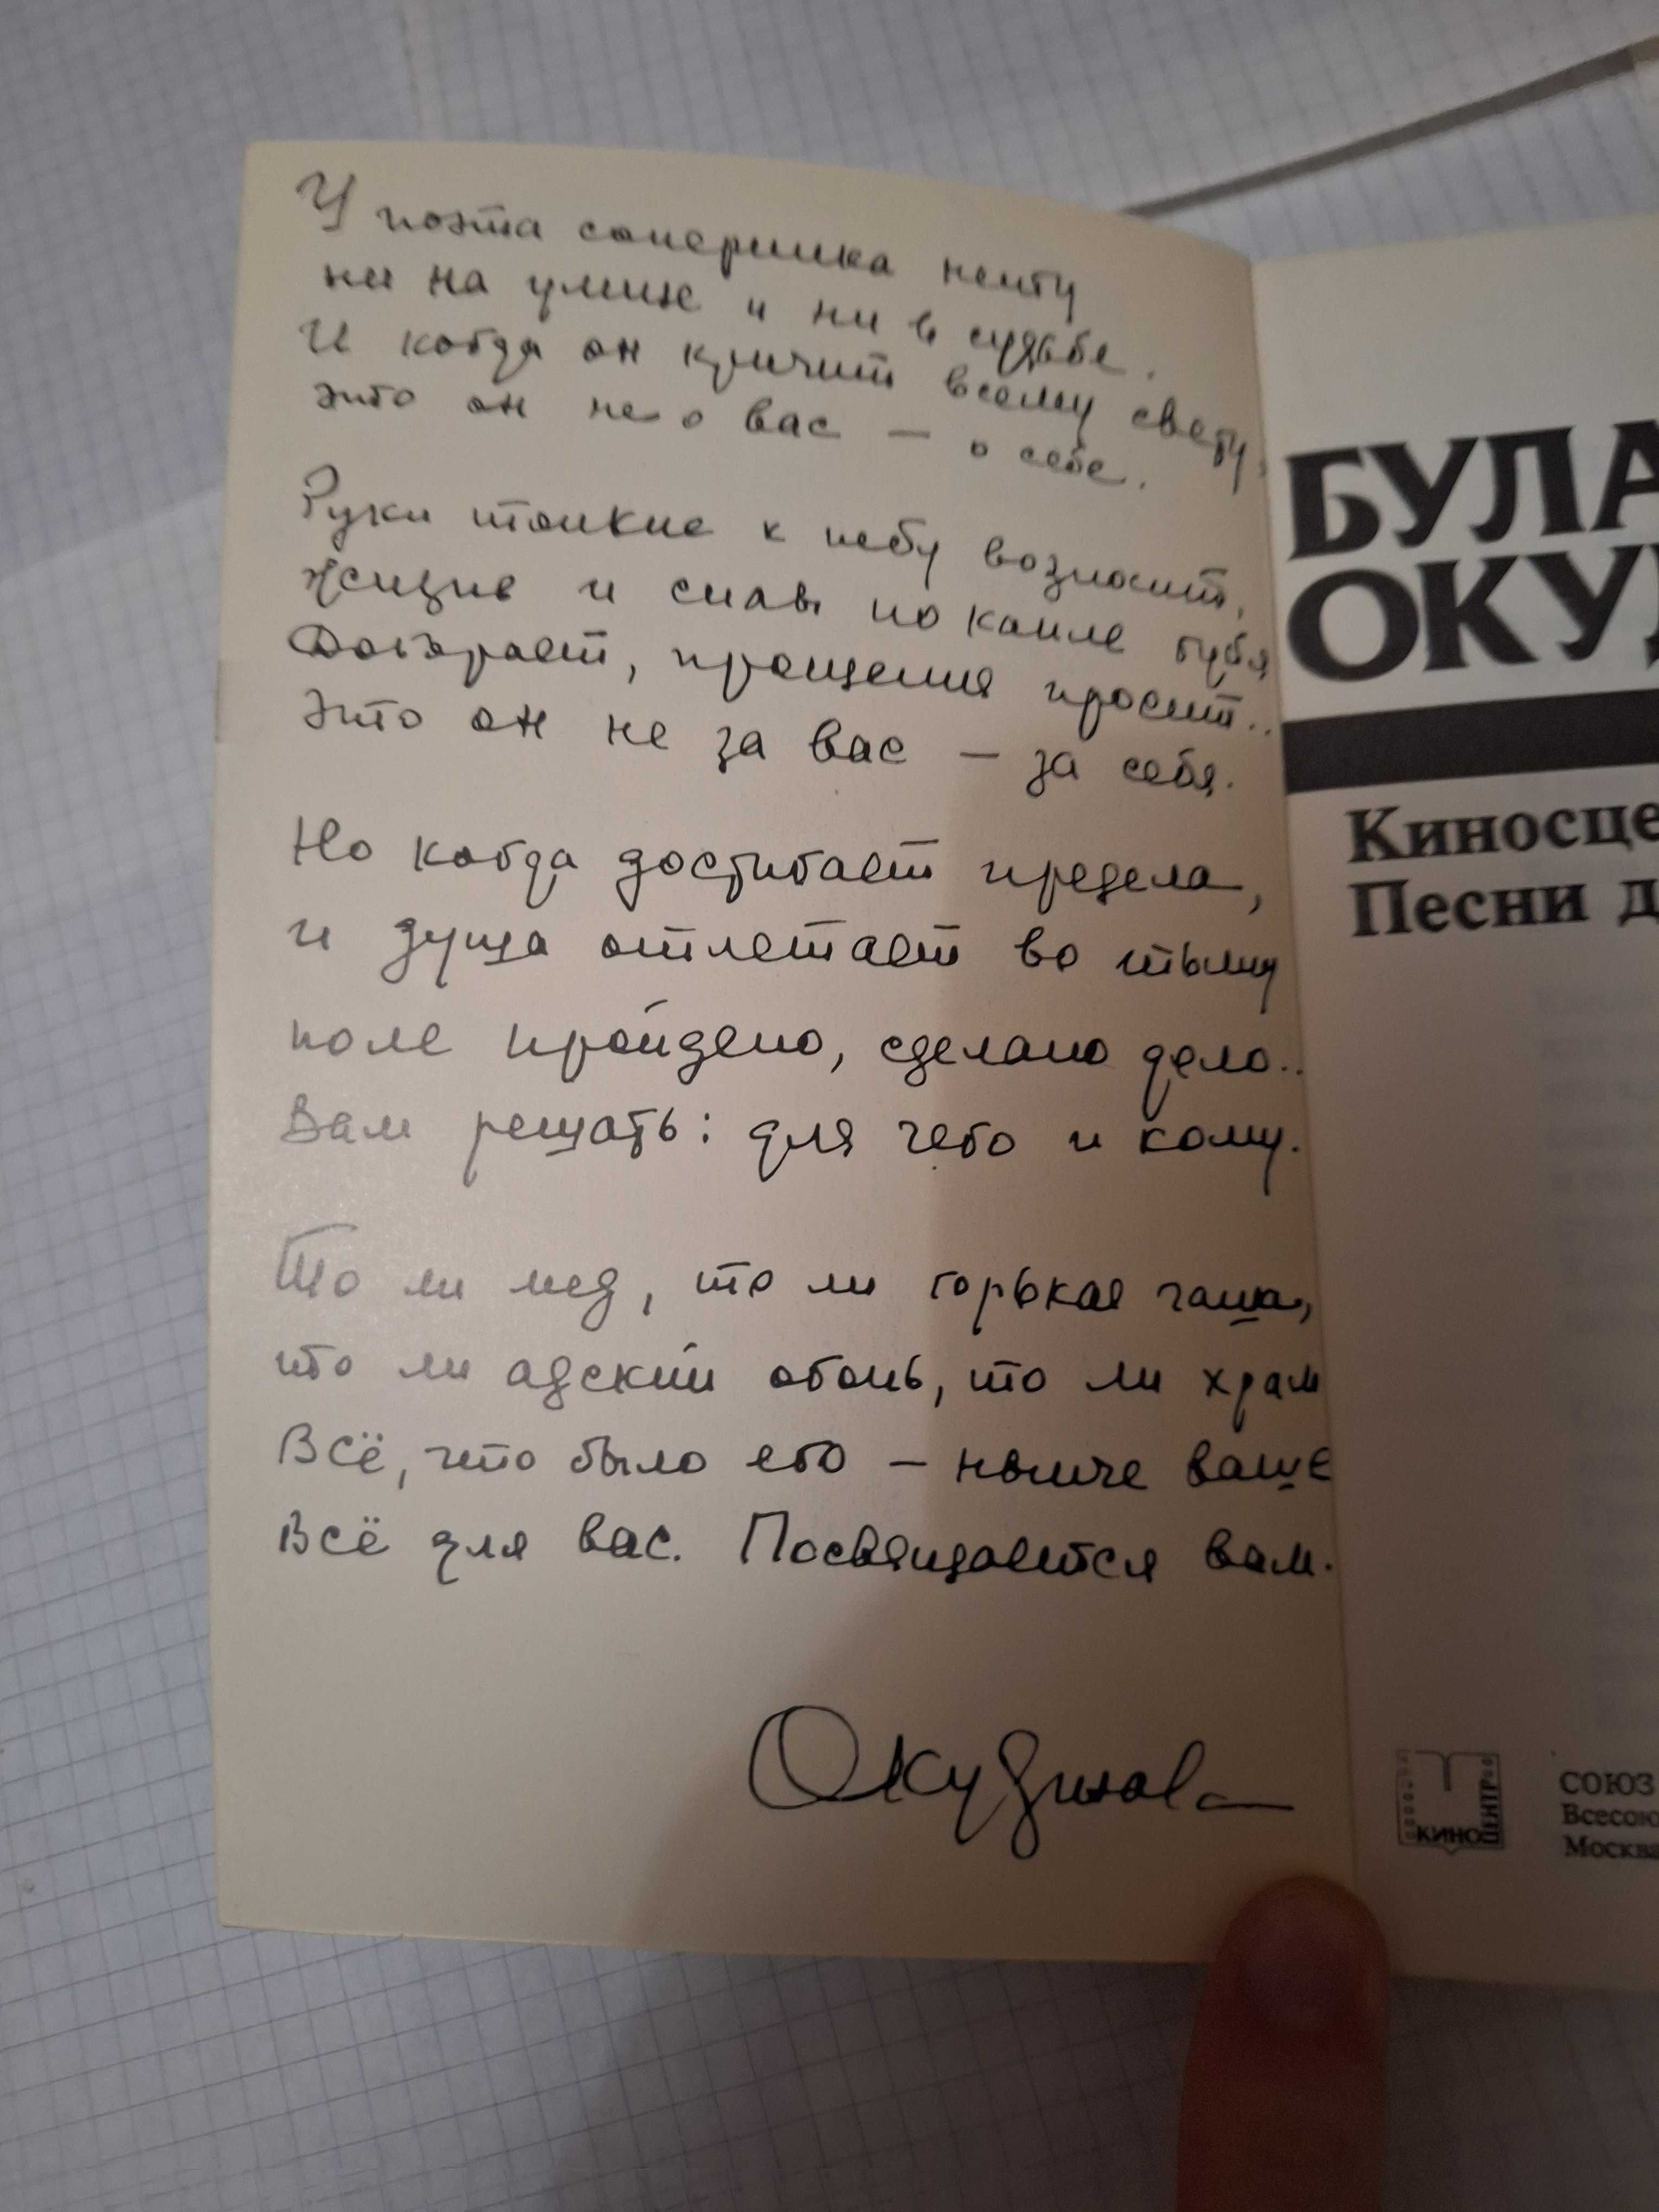 У поэта соперника нету
ни на улице и ни в судьбе.
И когда он кричит всему свету,
это он не о вас – о себе.
Руки тонкие к небу возносит,
Жизнь и силы по капле губя
Догорает, прощения просит..
Это он не за вас – за себя.
Но когда достигает предела,
и душа отлетает во тьму
поле пройдено, сделано дело..
Вам решать: для чего и кому.
То ли мед, то ли горькая чаша,
то ли адский огонь, то ли храм
Всё, что было его – нынче ваше
Всё для вас. Посвящается вам.
Окуджава
БУЛА
ОКУ
Киносце
Песни д
КИНО
ЦЕНТР
СОЮЗ
Всесою
Москва